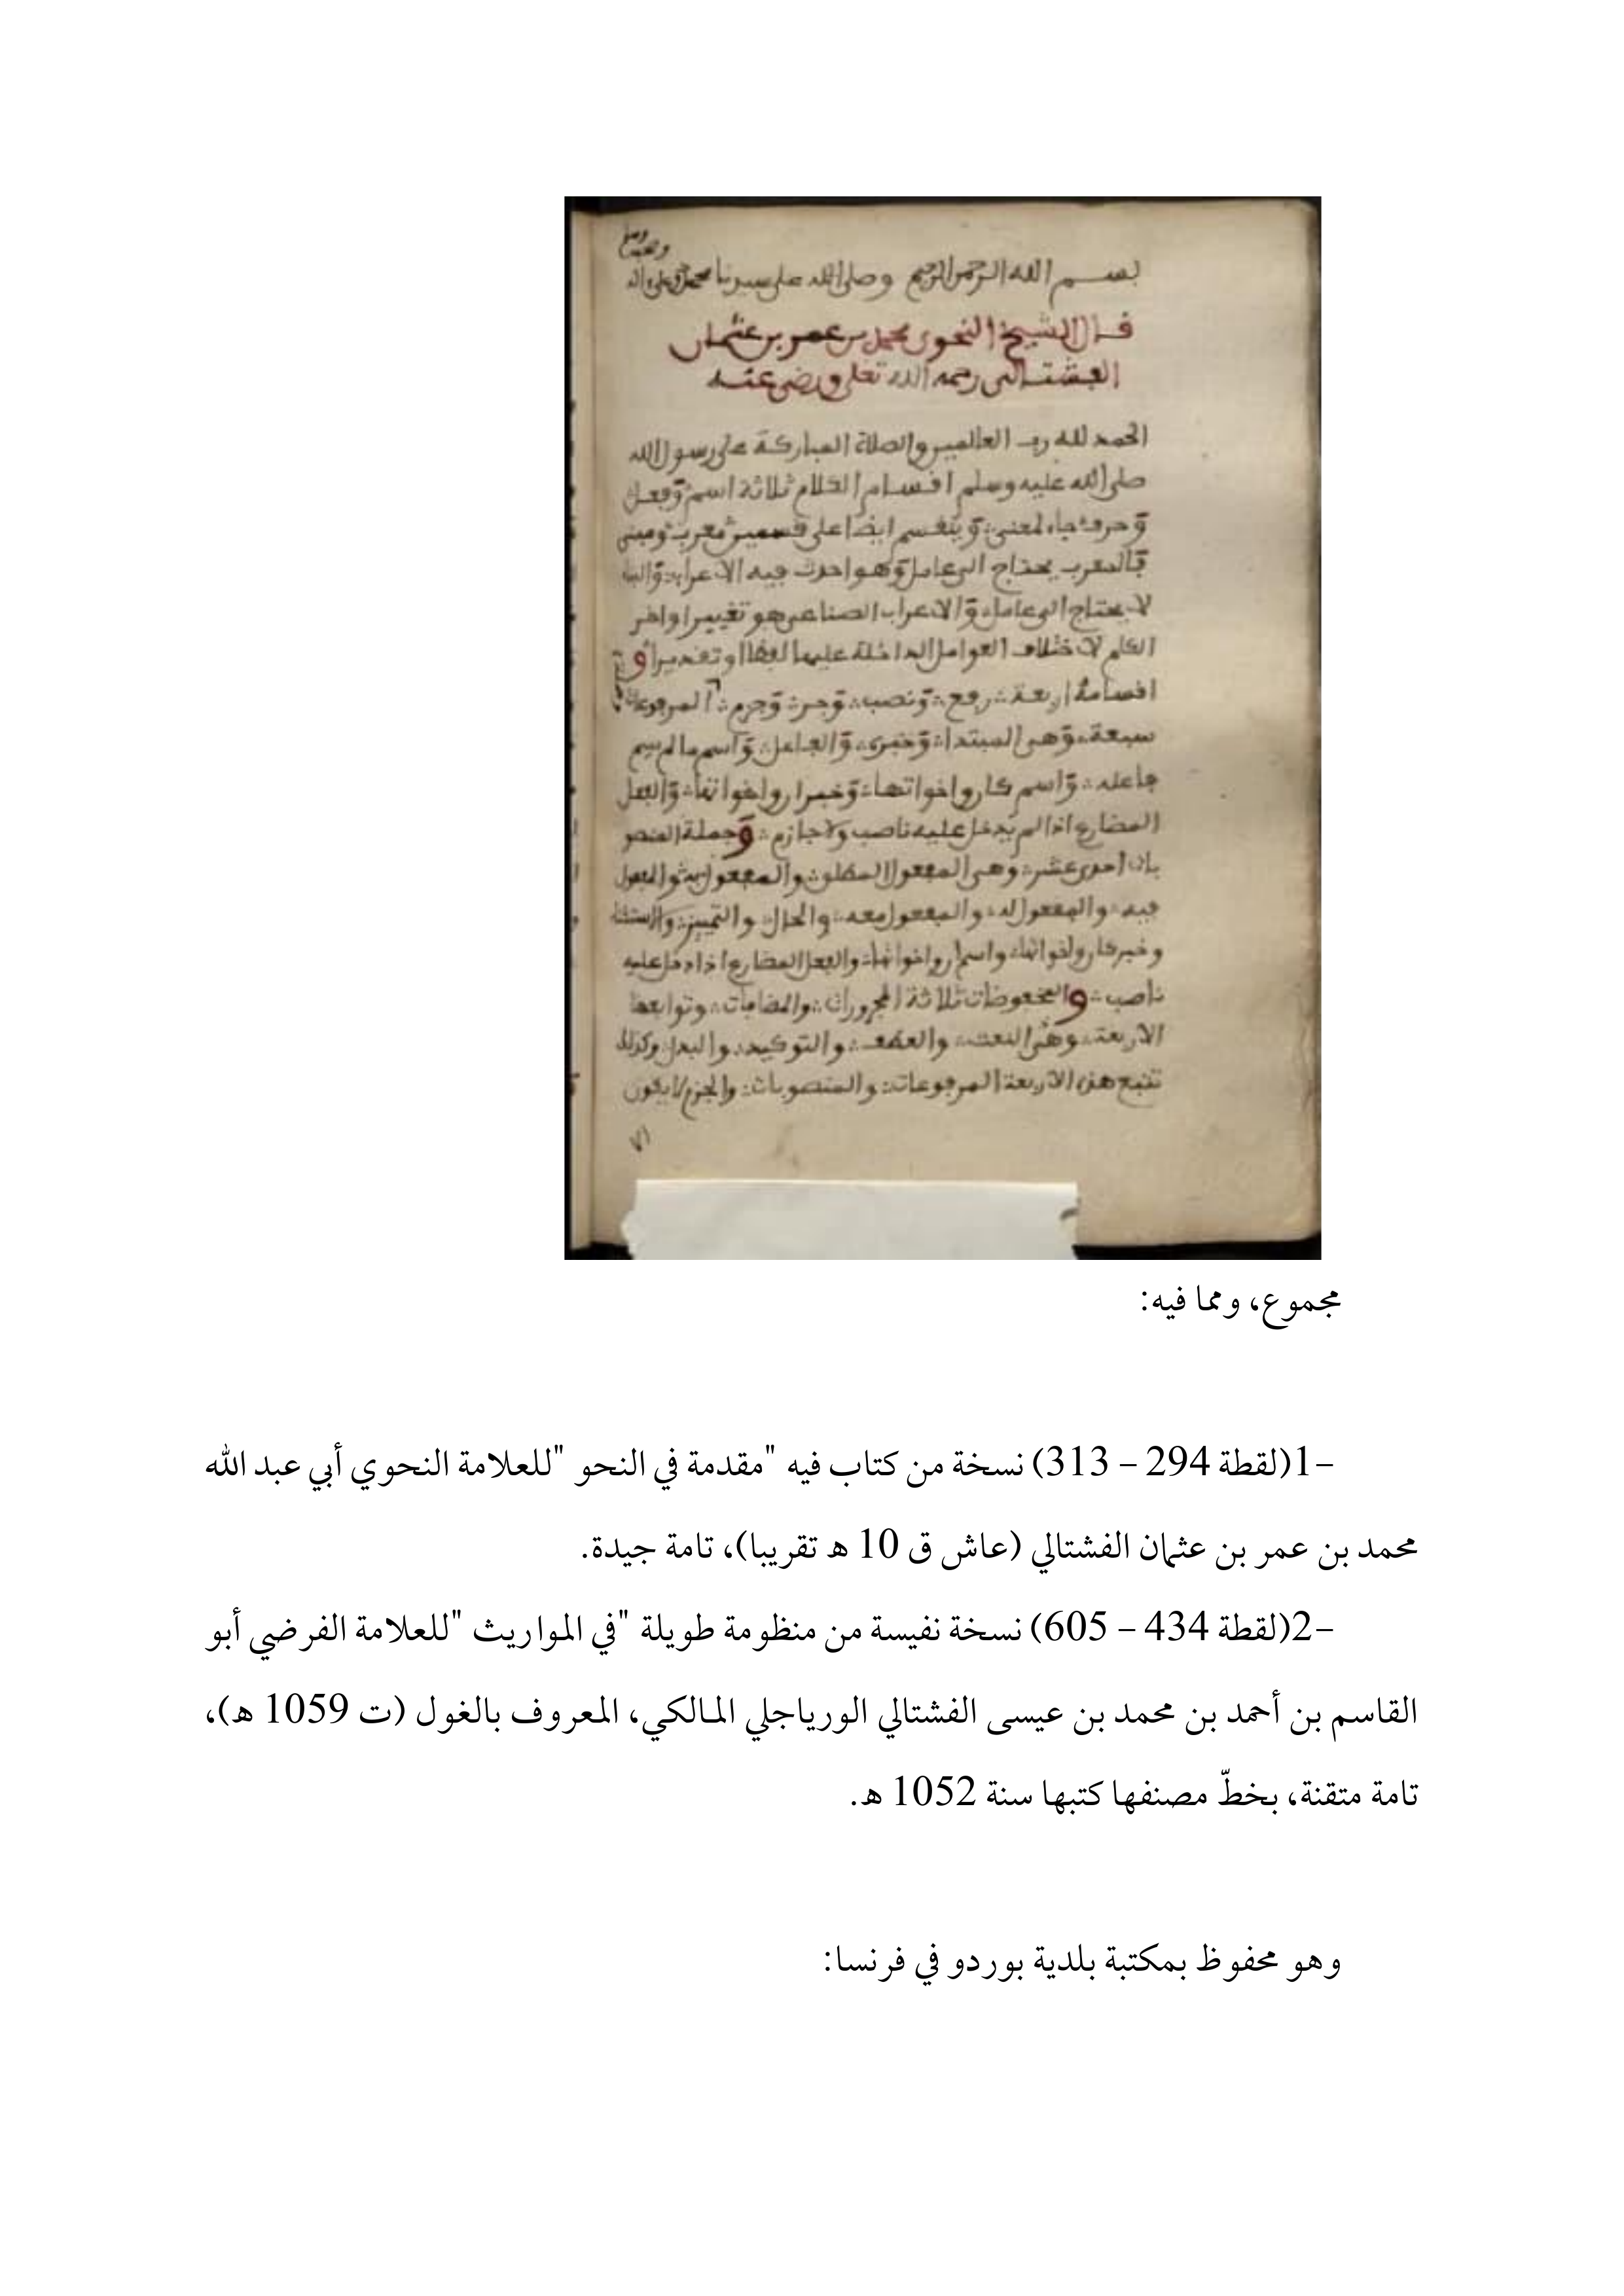 وصحبه وسلم
بسم الله الرحمن الرحيم وصلى الله على سيدنا محمد وعلى اله
قال الشيخ النحوى محمد بن عمر بن عثمان
الفشتالى رحمه الله تعلى ورضى عنه
الحمد لله رب العالمين والصلاة المباركة على رسول الله
صلى الله عليه وسلم اقسام الكلام ثلاثة اسم وفعل
وحرف جاء لمعنى وينقسم ايضا على قسمين معرب ومبنى
فالمعرب يحتاج الى عامل وهو احدث فيه الاعراب
لا يحتاج الى عامل والاعراب الصناعى هو تغيير اواخر
الكلم لاختلاف العوامل الداخلة عليها لفظا او تقديرا و
اقسامه اربعة رفع ونصب وجر وجزم المرفوعات
سبعة وهى المبتدا وخبره والفاعل واسم ما لم يسم
فاعله واسم كان واخواتها وخبر ان واخواتها والفعل
المضارع اذا لم يدخل عليه ناصب ولا جازم وجملة المنصو
بات احدى عشر وهى المفعول المطلق والمفعول به والمفعول
فيه والمفعول له والمفعول معه والحال والتمييز والاستثنا
وخبر كان واخواتها واسم ان واخواتها والفعل المضارع اذا دخل عليه
ناصب والمخفوضات ثلاثة المجرورات والمضافات وتوابعها
الاربعة وهى النعت والعطف والتوكيد والبدل وكذلك
تتبع هذه الاربعة المرفوعات والمنصوبات والجزم لا يكون
٧١
مجموع، ومما فيه:
-1(لقطة 294 – 313) نسخة من كتاب فيه "مقدمة في النحو "للعلامة النحوي أبي عبد الله
محمد بن عمر بن عثمان الفشتالي (عاش ق 10 هـ تقريبا)، تامة جيدة.
-2(لقطة 434 – 605) نسخة نفيسة من منظومة طويلة "في المواريث "للعلامة الفرضي أبو
القاسم بن أحمد بن محمد بن عيسى الفشتالي الورياجلي المالكي، المعروف بالغول (ت 1059 هـ)،
تامة متقنة، بخطّ مصنفها كتبها سنة 1052 هـ.
وهو محفوظ بمكتبة بلدية بوردو في فرنسا: